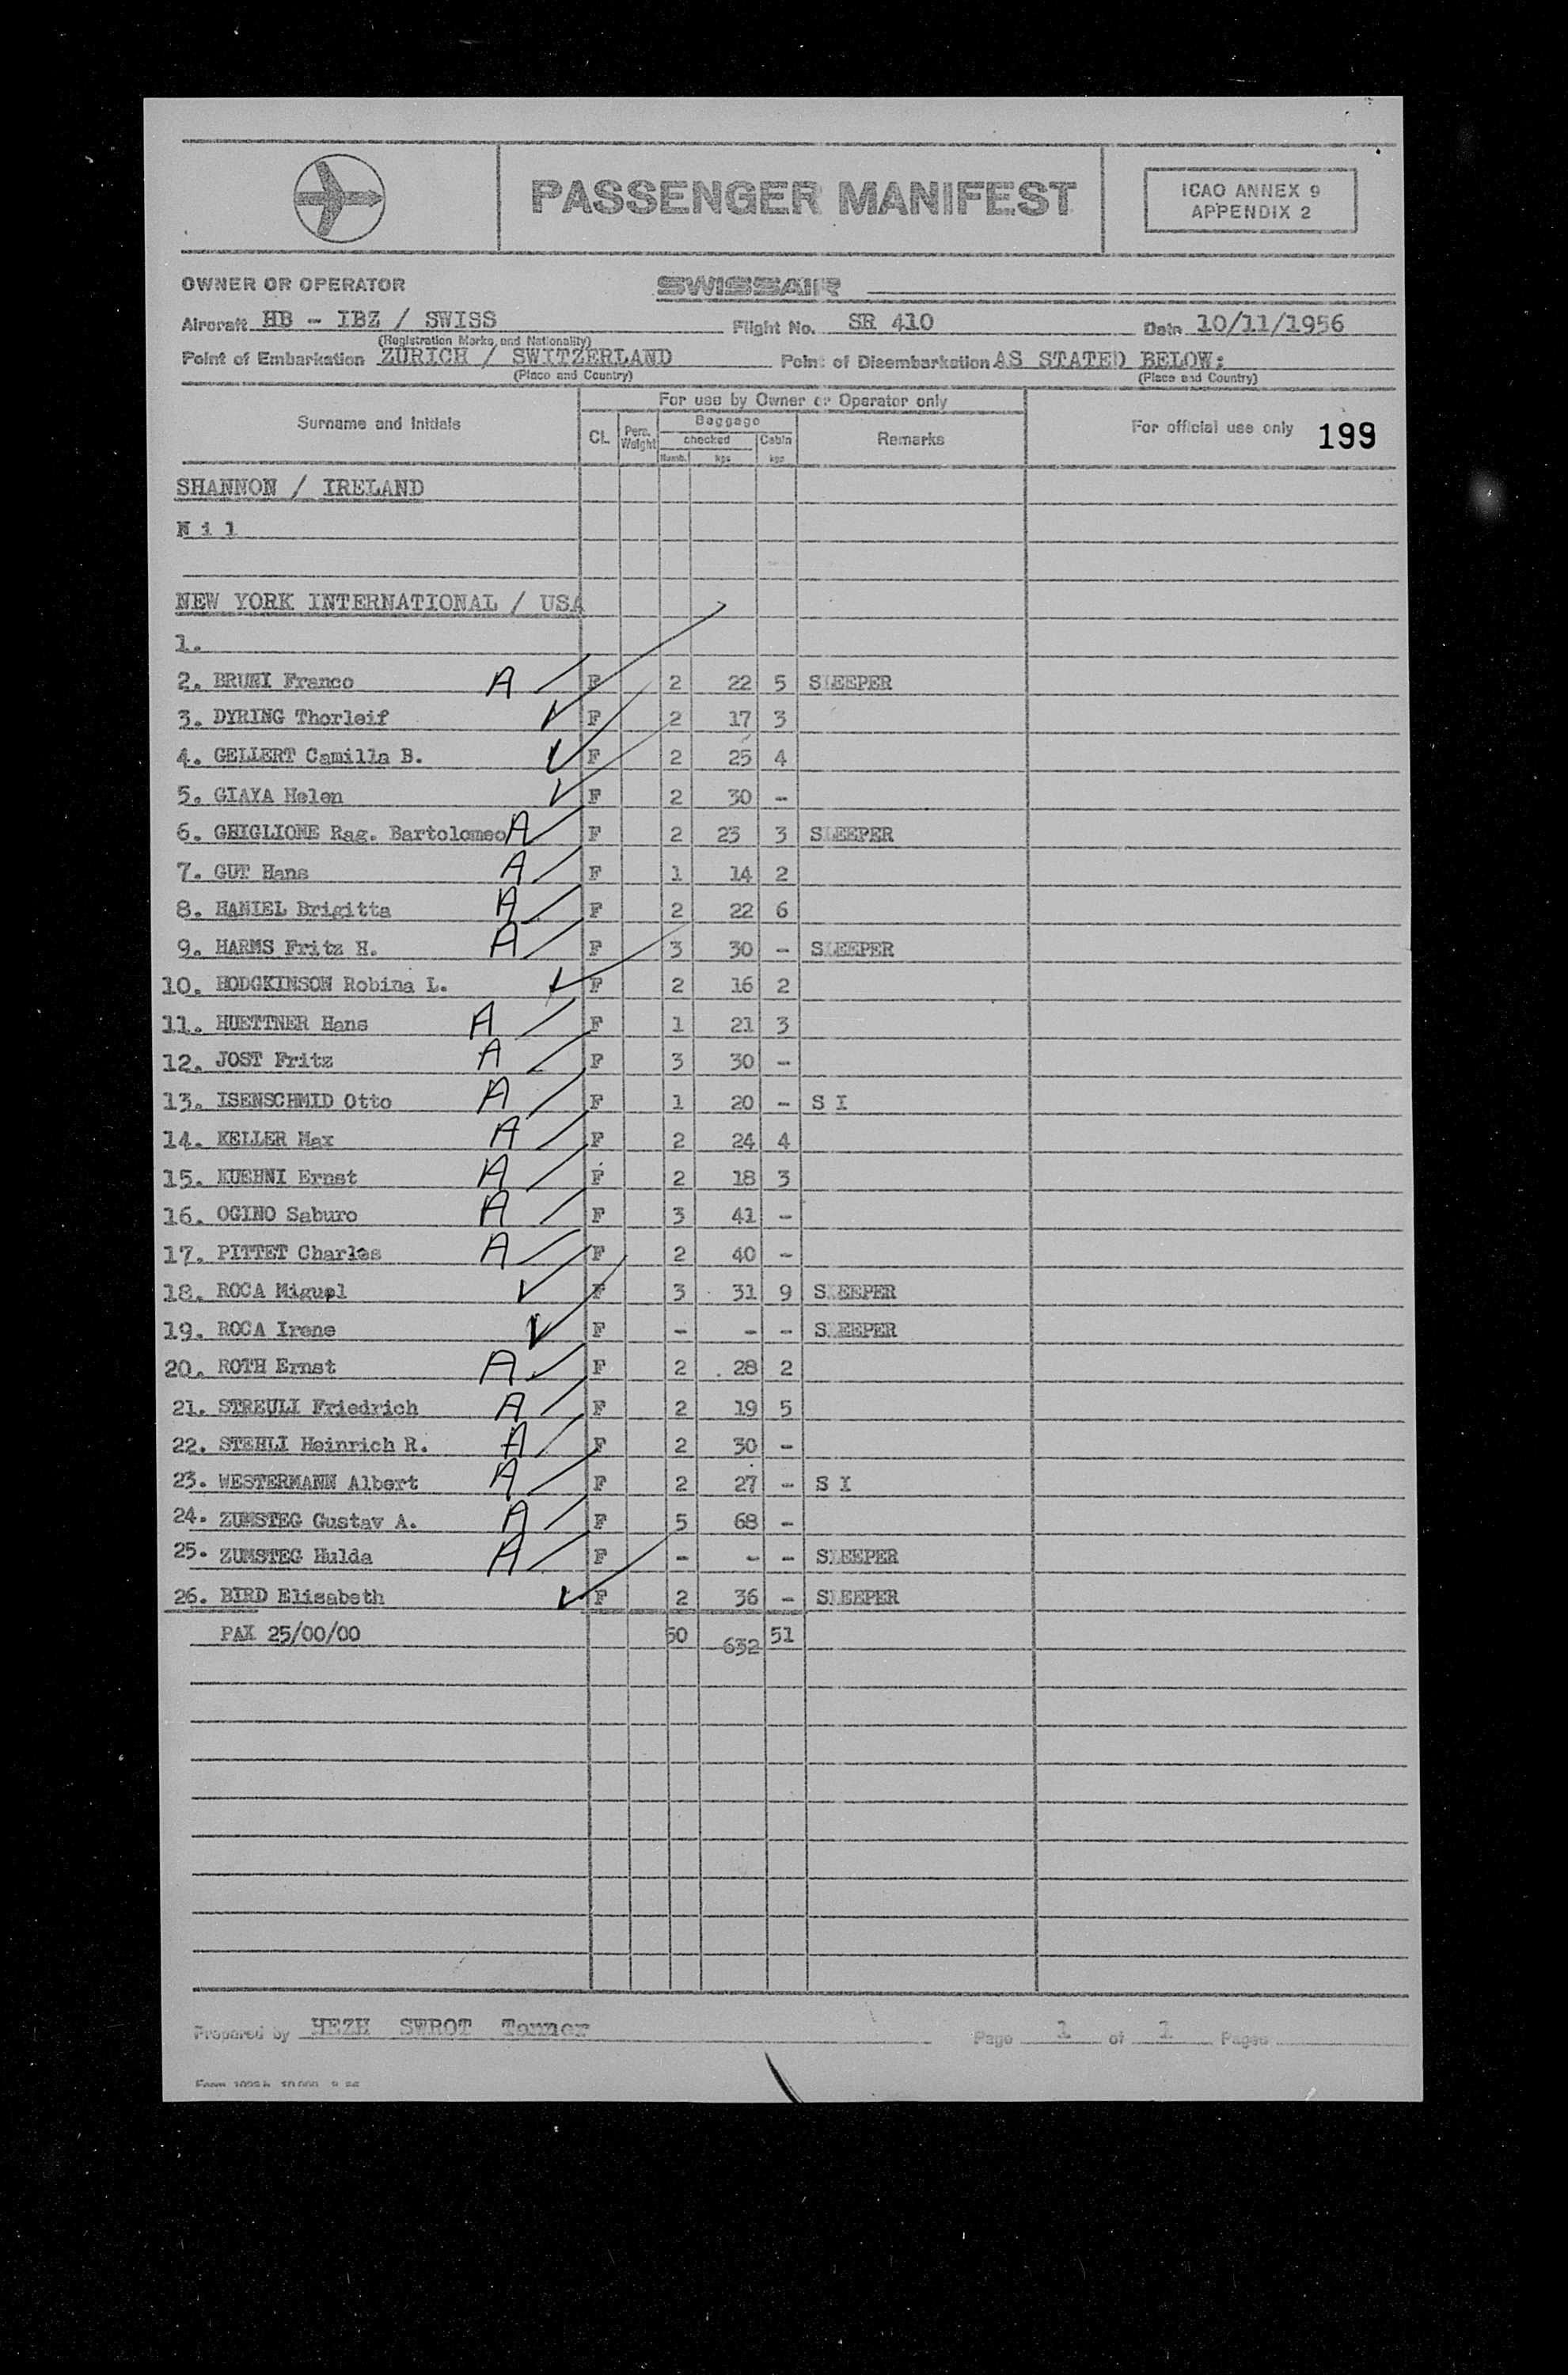 PASSENGER MANIFEST
ICAO ANNEX 9
APPENDIX 2
OWNER OR OPERATOR SWISSAIR
Aircraft HB - IBZ / SWISS Flight No. SR 410 Date 10/11/1956
(Registration Marks and Nationality)
Point of Embarkation ZURICH / SWITZERLAND Point of Disembarkation AS STATED BELOW:
(Place and Country) (Place and Country)
For use by Owner or Operator only
Surname and Initials CL. Pers. Weight Baggage checked Numb. kgs Cabin kgs Remarks For official use only 199
SHANNON / IRELAND
N i l
NEW YORK INTERNATIONAL / USA
1.
2. BRUNI Franco A F 2 22 5 SLEEPER
3. DYRING Thorleif F 2 17 3
4. GELLERT Camilla B. F 2 25 4
5. GIAYA Helen F 2 30 -
6. GHIGLIONE Rag. Bartolomeo A F 2 23 3 SLEEPER
7. GUT Hans A F 1 14 2
8. HANIEL Brigitta A F 2 22 6
9. HARMS Fritz H. A F 3 30 - SLEEPER
10. HODGKINSON Robina L. F 2 16 2
11. HUETTNER Hans A F 1 21 3
12. JOST Fritz A F 3 30 -
13. ISENSCHMID Otto A F 1 20 - S I
14. KELLER Max A F 2 24 4
15. KUEHNI Ernst A F 2 18 3
16. OGINO Saburo A F 3 41 -
17. PITTET Charles A F 2 40 -
18. ROCA Miguel F 3 31 9 SLEEPER
19. ROCA Irene F - - - SLEEPER
20. ROTH Ernst A F 2 28 2
21. STREULI Friedrich A F 2 19 5
22. STEHLI Heinrich R. A F 2 30 -
23. WESTERMANN Albert A F 2 27 - S I
24. ZUMSTEG Gustav A. A F 5 68 -
25. ZUMSTEG Hulda A F - - - SLEEPER
26. BIRD Elisabeth F 2 36 - SLEEPER
PAX 25/00/00 50 632 51
Prepared by HEZH SWROT Tanner Page 1 of 1 Pages